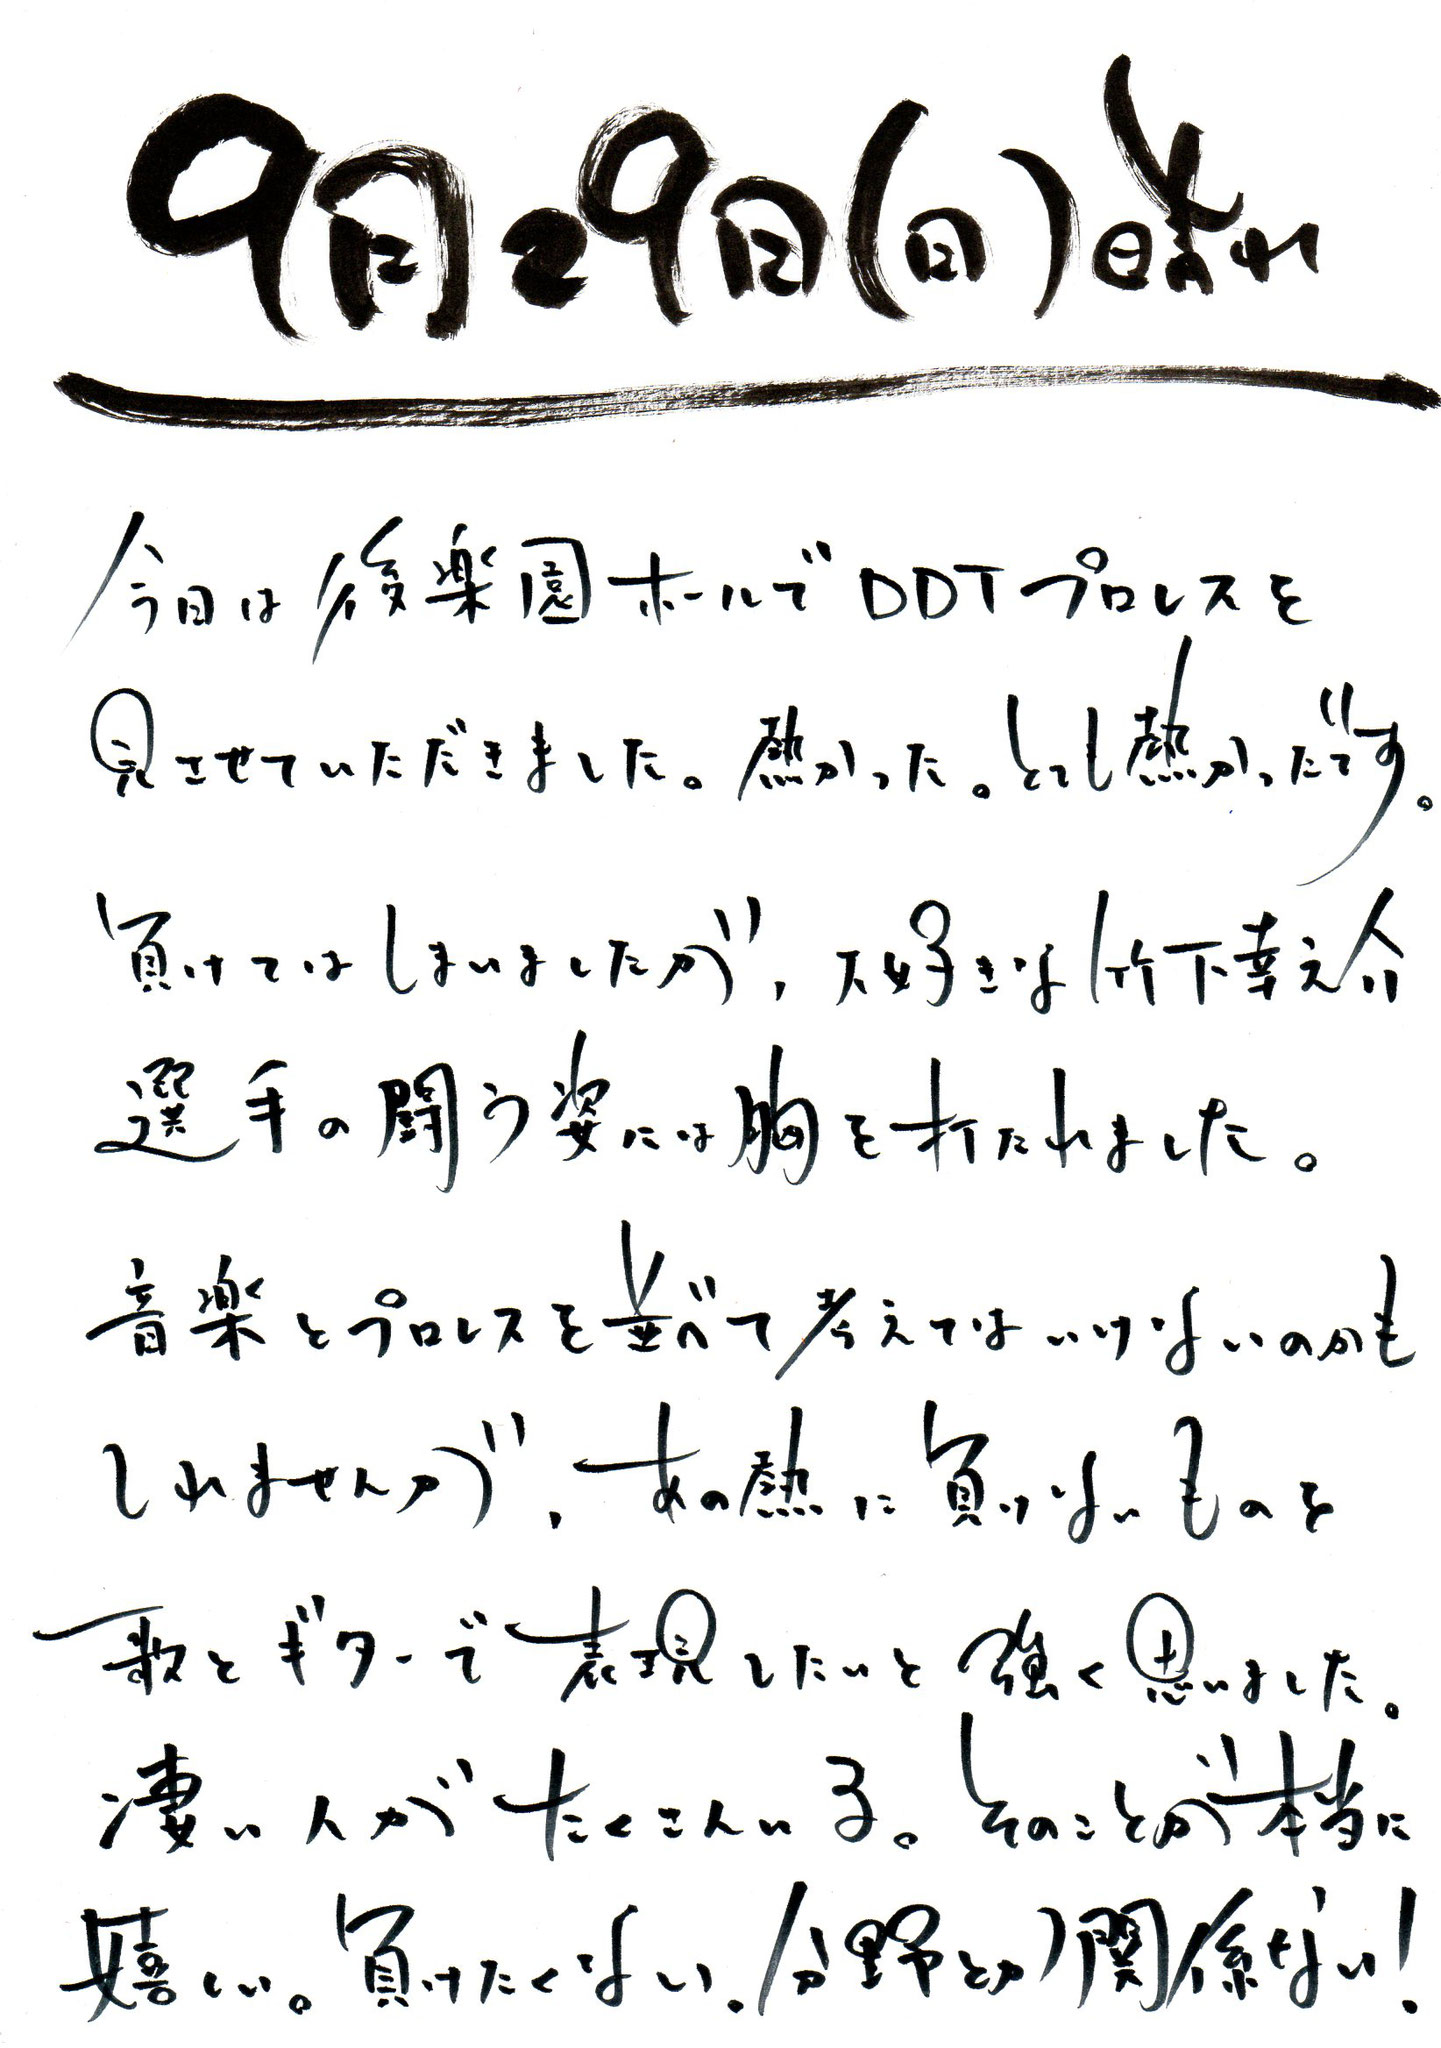 9月29日(日)晴れ
今日は後楽園ホールでDDTプロレスを
見させていただきました。熱かった。とても熱かったです。
負けてはしまいましたが、大好きな竹下幸之介
選手の闘う姿には胸を打たれました。
音楽とプロレスを並べて考えてはいけないのかも
しれませんが、あの熱に負けないものを
歌とギターで表現したいと強く思いました。
凄い人がたくさんいる。そのことが本当に
嬉しい。負けたくない。分野とか関係ない!